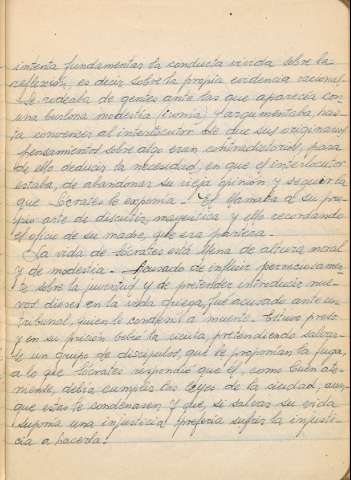 intenta fundamentar la conducta vivida sobre la
reflexión, es decir sobre la propia evidencia racional.
Se rodeaba de gentes ante las que aparecía con
una burlona modestia (ironía) y argumentaba, has-
ta convencer al interlocutor de que sus originarios
pensamientos sobre algo eran contradictorios, para
de ello deducir la necesidad, en que el interlocutor
estaba, de abandonar su vieja opinión y seguir la
que Sócrates le exponía. El llamaba a su pro-
pio arte de discutir, mayeutica y ello recordando
el oficio de su madre, que era partera.
La vida de Sócrates está llena de altura moral
y de modestia. Acusado de influir perniciosamen-
te sobre la juventud y de pretender introducir nue-
vos dioses en la vida griega, fué acusado ante un
tribunal, quien le condenó a muerte. Estuvo preso
y en su prisión bebió la cicuta, pretendiendo salvar-
le un grupo de discípulos, que le proponían la fuga,
a lo que Sócrates respondió que él, como buen ale-
mente, debía cumplir las leyes de la ciudad, aun-
que estas le condenasen. Y que, si salvar su vida
suponía una injusticia prefería sufrir la injusti-
cia a hacerla.